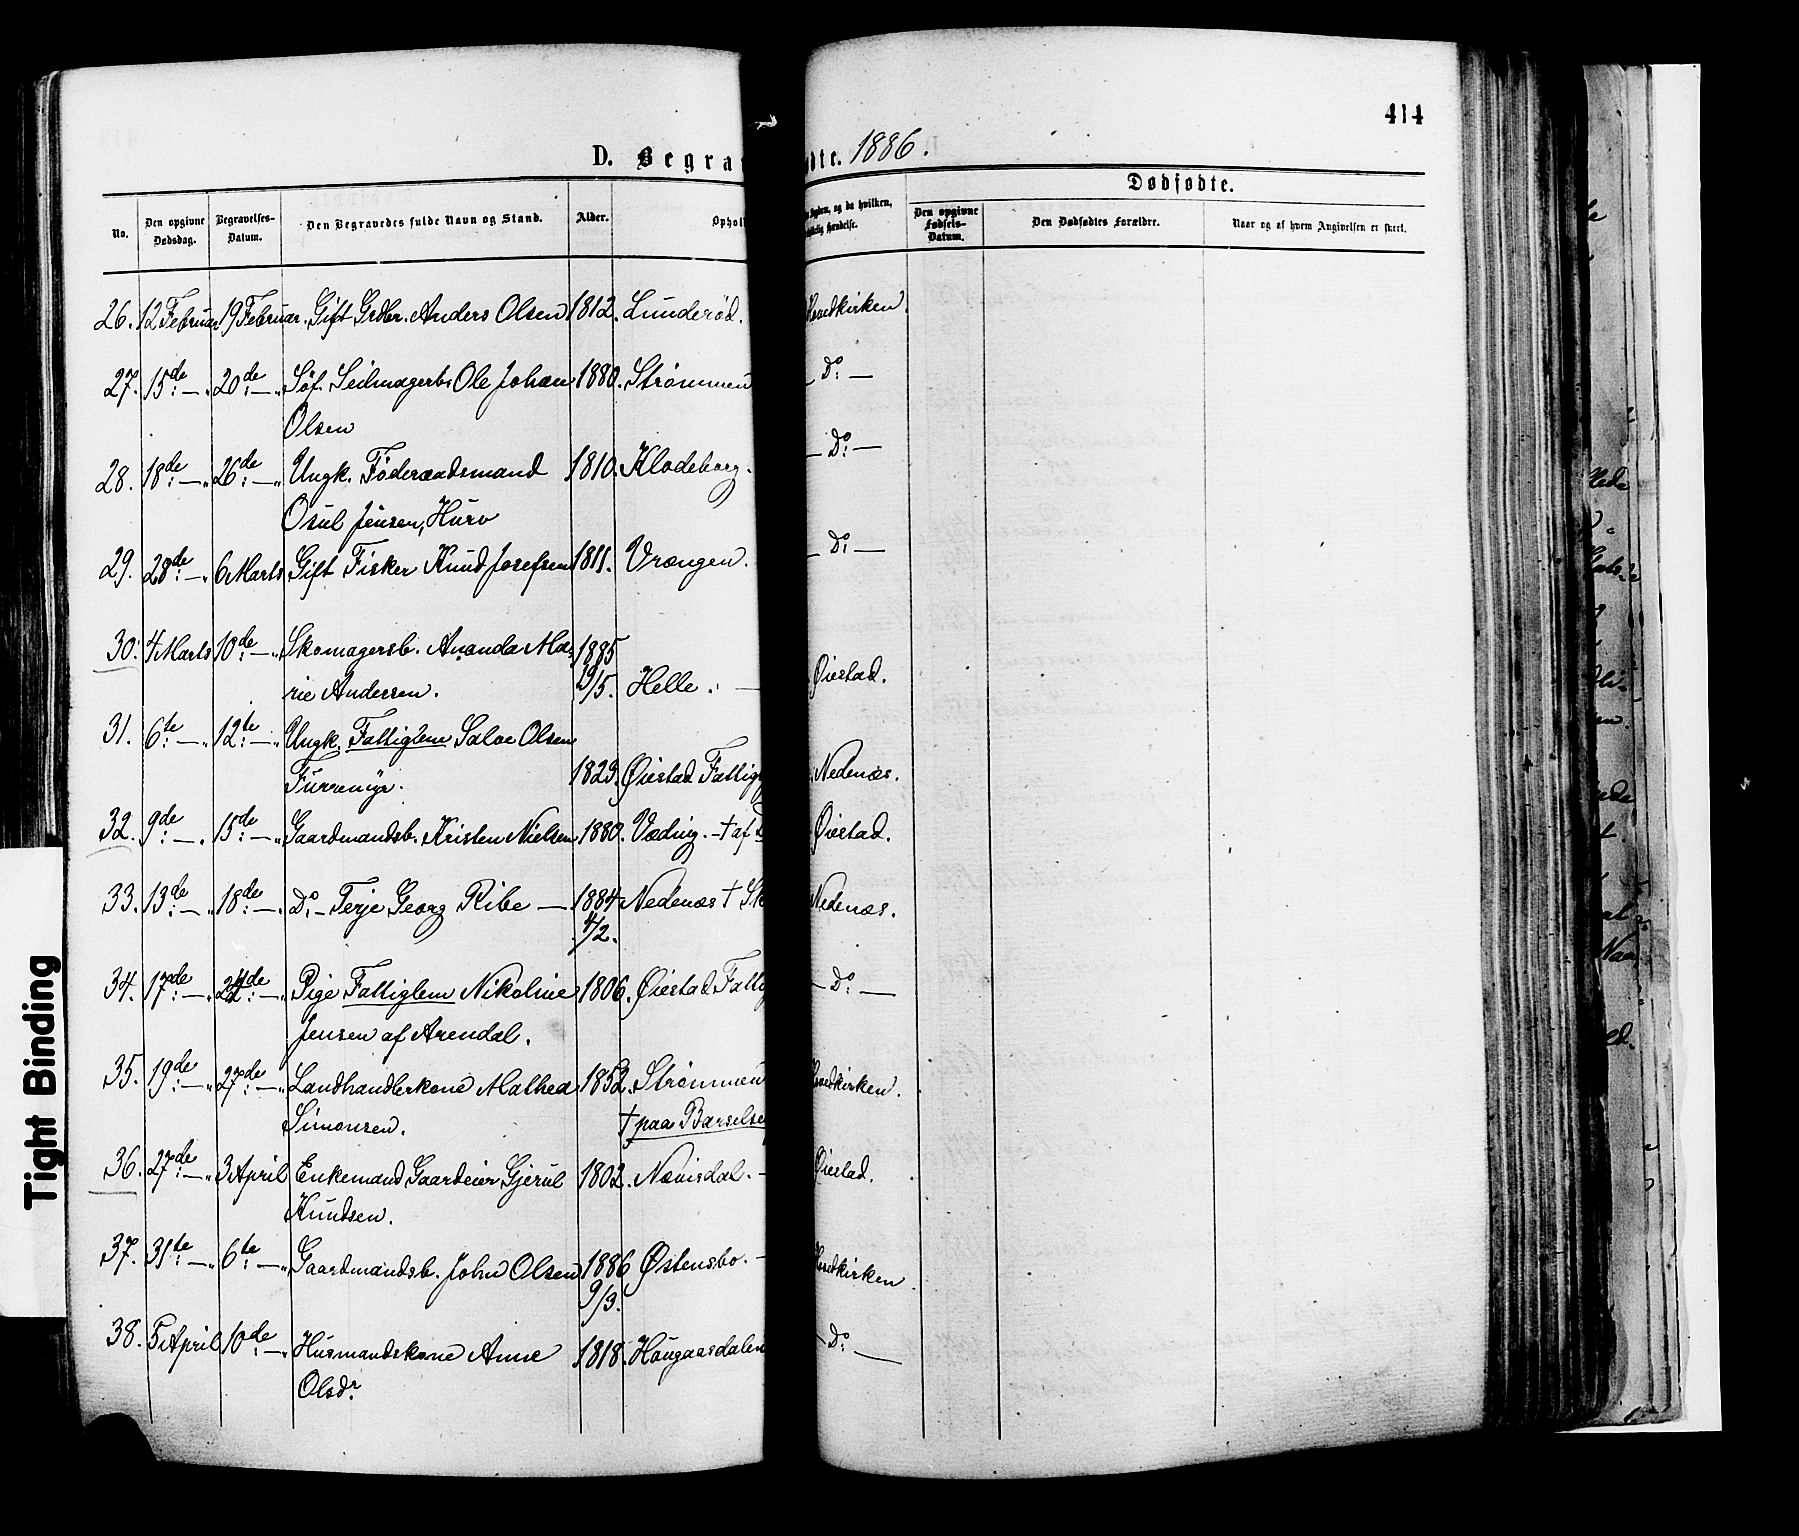 414
D. Begra
dte. 1886.
No.
Den opgivne Dødsdag.
Begravelses-Datum.
Den Begravedes fulde Navn og Stand.
Alder.
Ophol
og da hvilken,
Dødfødte.
Den opgivne Fødsels-Datum.
Den Dødfødtes Forældre.
Naar og af hvem Angivelsen er skeet.
26. 12 Februar 19 Februar. Gift Grdbr. Anders Olsen 1812. Lunderød. Hovedkirken.
27. 15de — „ 20de — „ Søf. Seilmagerb. Ole Johan 1880. Strømmen — Do: —
Olsen
28. 18de — „ 26de — „ Ungk. Føderaadsmand 1810. Klodeborg. — Do: —
Osul Jensen, Hurv
29. 28de — „ 6 Marts Gift Fisker Knud Josefsen 1811. Vrængen. — Do: —
30. 4 Marts 10de — „ Skomagersb. Ananda Ma- 1885
rie Andersen. 19/5. Helle. — Øiestad.
31. 6te — „ 12te — „ Ungk. Fattiglem Salve Olsen
Furremyr. 1823. Øiestad Fattig Nedenæs.
32. 9de — „ 15de — „ Gaardmandsb. Kristen Nielsen 1880. Væding. — † af Øiestad.
33. 13de — „ 18de — „ Do: — Terje Georg Ribe — 1884 Nedenæs † Sk Nedenæs.
4/2.
34. 17de — „ 24de — „ Pige Fattiglem Nikoline 1806. Øiestad Fattig — Do: —
Jensen af Arendal.
35. 19de — „ 27de — „ Landhandlerkone Mathea 1852. Strømmen Hovedkirken.
Simonsen. † paa Barselse
36. 27de — „ 3 April Enkemand Gaardeier Gjerul 1802. Nævisdal. — Øiestad.
Knudsen.
37. 31te — „ 6te — „ Gaardmandsb. John Olsen 1886 Østensbo. — Hovedkirken.
9/3.
38. 5 April 10de — „ Husmandskone Anne 1818. Haugaasdalen — Do: —
Olsdr.
Tight Binding